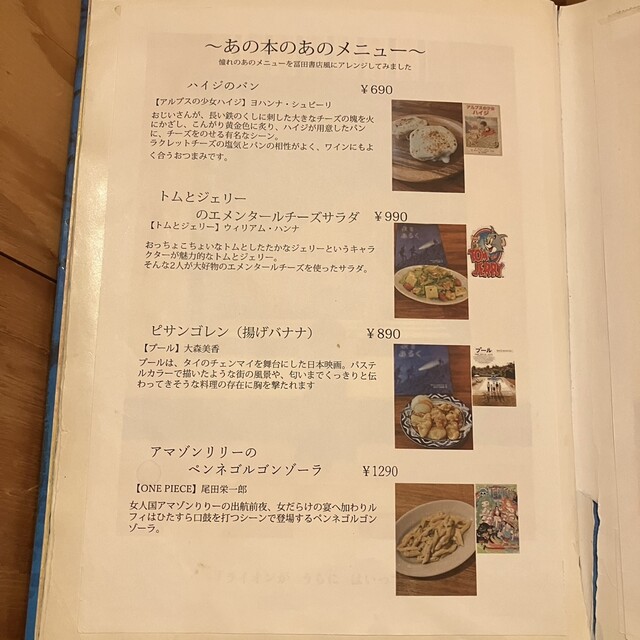 ～あの本のあのメニュー～
憧れのあのメニューを冨田書店風にアレンジしてみました
ハイジのパン ￥690
【アルプスの少女ハイジ】ヨハンナ・シュピーリ
おじいさんが、長い鉄のくしに刺した大きなチーズの塊を火
にかざし、こんがり黄金色に炙り、ハイジが用意したパン
に、チーズをのせる有名なシーン。
ラクレットチーズの塩気とパンの相性がよく、ワインにもよ
く合うおつまみです。
アルプスの少女
ハイジ
トムとジェリー
のエメンタールチーズサラダ ￥990
【トムとジェリー】ウィリアム・ハンナ
おっちょこちょいなトムとしたたかなジェリーというキャラ
クターが魅力的なトムとジェリー。
そんな2人が大好物のエメンタールチーズを使ったサラダ。
TOM
JERRY
ピサンゴレン（揚げバナナ） ￥890
【プール】大森美香
プールは、タイのチェンマイを舞台にした日本映画。パステ
ルカラーで描いたような街の風景や、匂いまでくっきりと伝
わってきそうな料理の存在に胸を撃たれます
プール
アマゾンリリーの
ペンネゴルゴンゾーラ ￥1290
【ONE PIECE】尾田栄一郎
女人国アマゾンリリーの出航前夜、女だらけの宴へ加わりル
フィはひたすら口鼓を打つシーンで登場するペンネゴルゴン
ゾーラ。